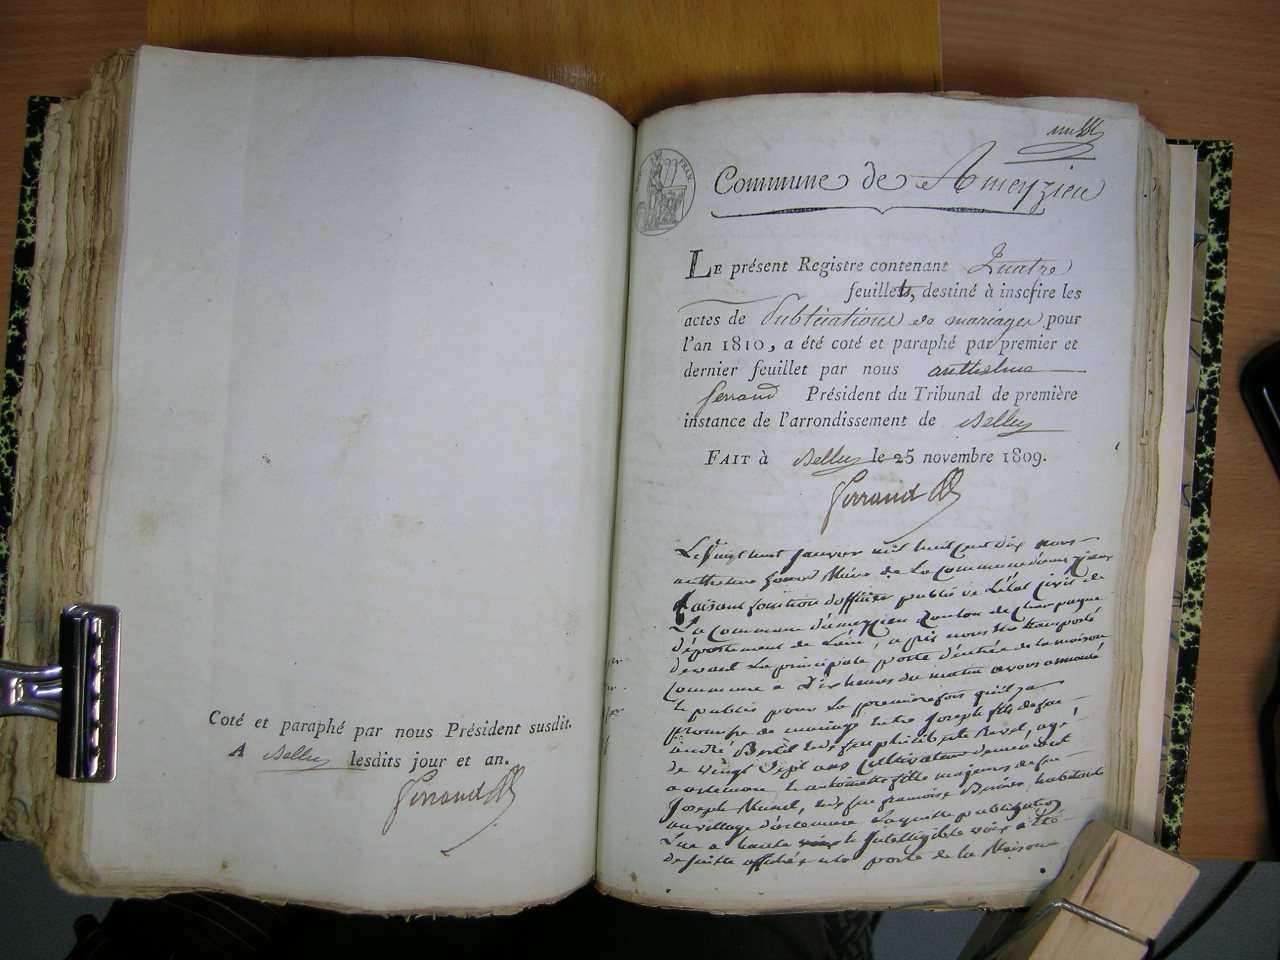 Coté et paraphé par nous Président susdit.
A Belley lesdits jour et an.
Ferrand
Commune de Ameyzieu
FRAN
LE présent Registre contenant Quatre
feuillets, destiné à inscrire les
actes de Publications de mariages pour
l'an 1810, a été coté et paraphé par premier et
dernier feuillet par nous anthelme
Ferrand Président du Tribunal de première
instance de l'arrondissement de Belley
FAIT à Belley le 25 novembre 1809.
Ferrand
Le vingt huit Janvier mil huit Cent dix nous
anthelme Maire de La Commune d'ameyzieu
faisant fonction d'officier public de L'état Civil de
La Commune d'ameyzieu Canton de Champagne
département de L'ain, a pis nous être transporté
devant La principale porte d'entrée de la maison
Commune a Dix heures du matin avons annoncé
et publié pour La premiere fois qu'il ya
promesse de mariage entre Joseph fils de feu
andré Bertet et de feu Revel, agé
de vingt Sept ans Cultivateur demeurant
a et antoinette fille majeure de feu
Joseph et de feu francoise habitant
au village Laquelle publication
Lue a haute et Intelligible voix a été
de suitte affichée a la porte de la Maison